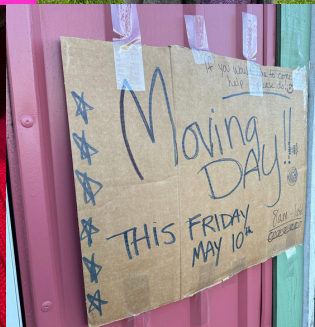 If you would like to come
help - please do
Moving
DAY!!
THIS FRIDAY
MAY 10th
8am -